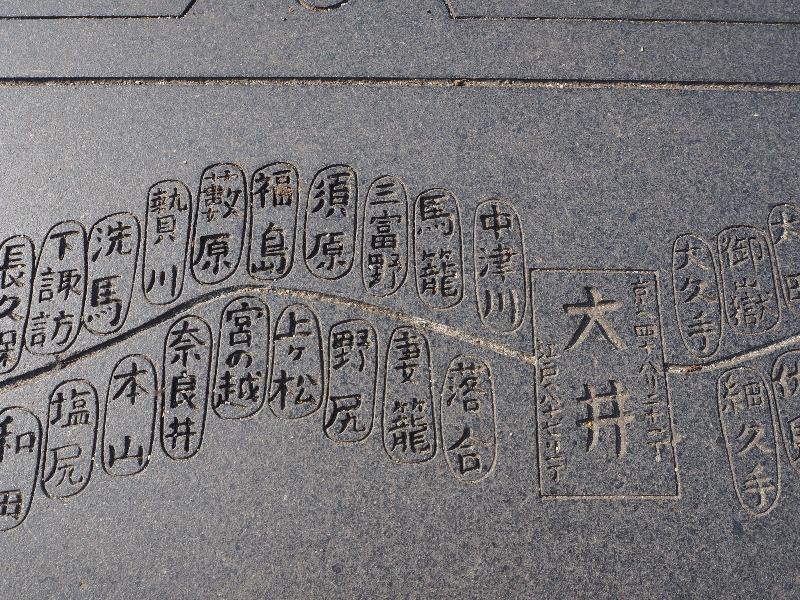 長久保
下諏訪
洗馬
贄川
藪原
福島
須原
三富野
馬籠
中津川
大井
京へ四十八リ二十二丁
江戸へ八十七リ二丁
大久手
御嶽
和田
塩尻
本山
奈良井
宮の越
上ヶ松
野尻
妻籠
落合
細久手